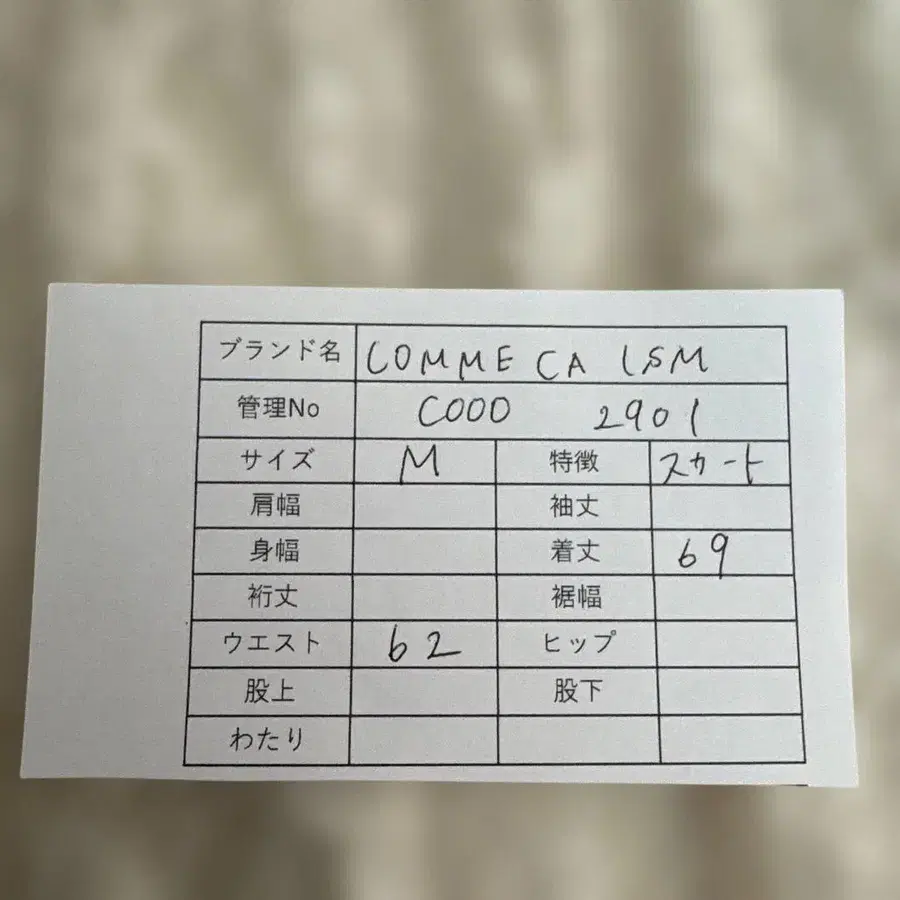 ブランド名 COMME CA ISM
管理No COOD 2901
サイズ M 特徴 スカート
肩幅 袖丈
身幅 着丈 69
裄丈 裾幅
ウエスト 62 ヒップ
股上 股下
わたり